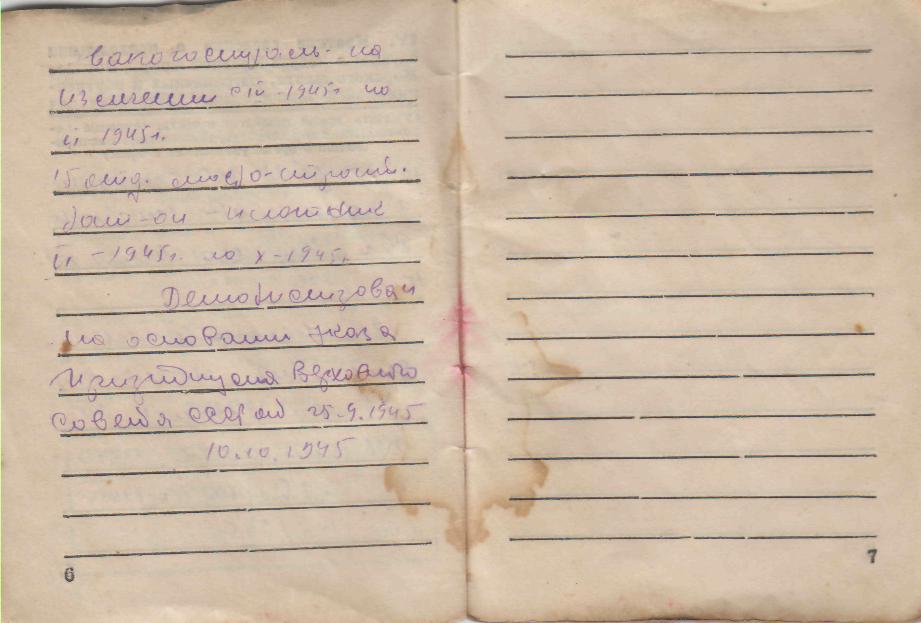 вакогоспиталь- на
излечении с IV-1945г. по
II-1945г.
15 отд. мосто-строит.
бат-он - плотник
II-1945г. по X-1945г.
Демобилизован
на основании указа
Призидиума Верховного
Совета СССР от 25-9.1945
10.10.1945
6
7